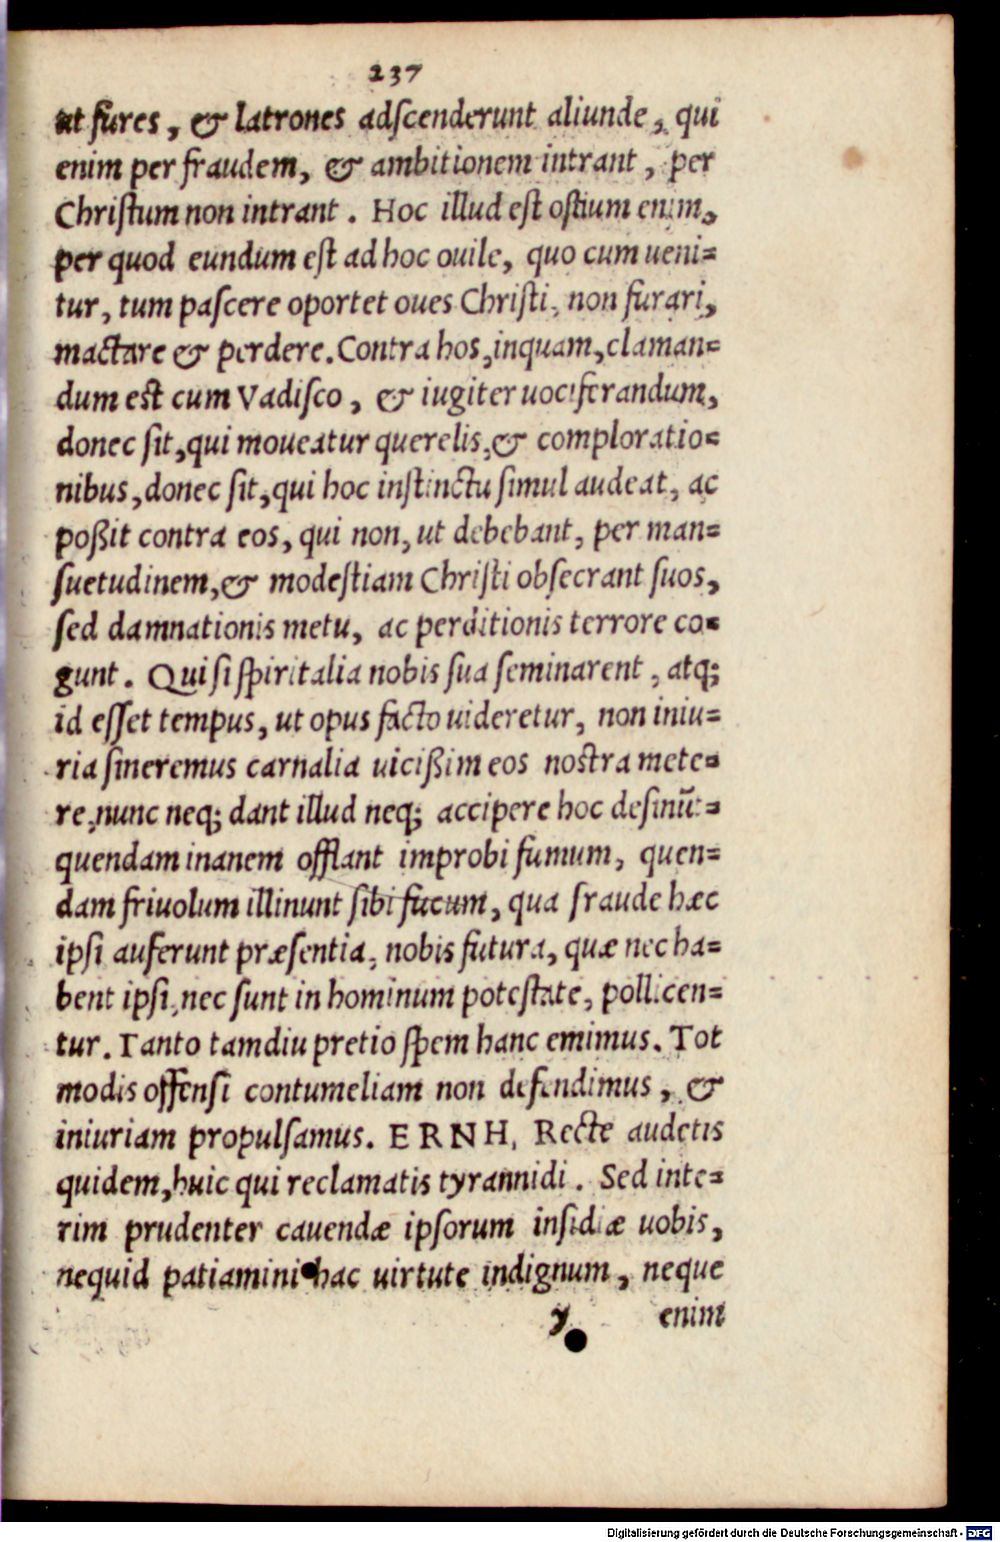 237
ut fures, & latrones adſcenderunt aliunde, qui
enim per fraudem, & ambitionem intrant, per
Chriſtum non intrant. Hoc illud eſt oſtium enim,
per quod eundum eſt ad hoc ouile, quo cum ueni=
tur, tum paſcere oportet oues Chriſti, non furari,
mactare & perdere. Contra hos, inquam, claman=
dum eſt cum Vadiſco, & iugiter uociferandum,
donec ſit, qui moueatur querelis, & comploratio=
nibus, donec ſit, qui hoc inſtinctu ſimul audeat, ac
poßit contra eos, qui non, ut debebant, per man=
ſuetudinem, & modeſtiam Chriſti obſecrant ſuos,
ſed damnationis metu, ac perditionis terrore co=
gunt. Qui ſi ſpiritalia nobis ſua ſeminarent, atq;
id eſſet tempus, ut opus facto uideretur, non iniu=
ria ſineremus carnalia uicißim eos noſtra mete=
re, nunc neq; dant illud neq; accipere hoc deſinūt=
quendam inanem offlant improbi fumum, quen=
dam friuolum illinunt ſibi fucum, qua fraude hæc
ipſi auferunt præſentia, nobis futura, quæ nec ha=
bent ipſi, nec ſunt in hominum poteſtate, pollicen=
tur. Tanto tamdiu pretio ſpem hanc emimus. Tot
modis offenſi contumeliam non defendimus, &
iniuriam propulſamus. ERNH, Recte audetis
quidem, huic qui reclamatis tyrannidi. Sed inte=
rim prudenter cauendæ ipſorum inſidiæ uobis,
nequid patiamini hac uirtute indignum, neque
y enim
Digitalisierung gefördert durch die Deutsche Forschungsgemeinschaft - DFG